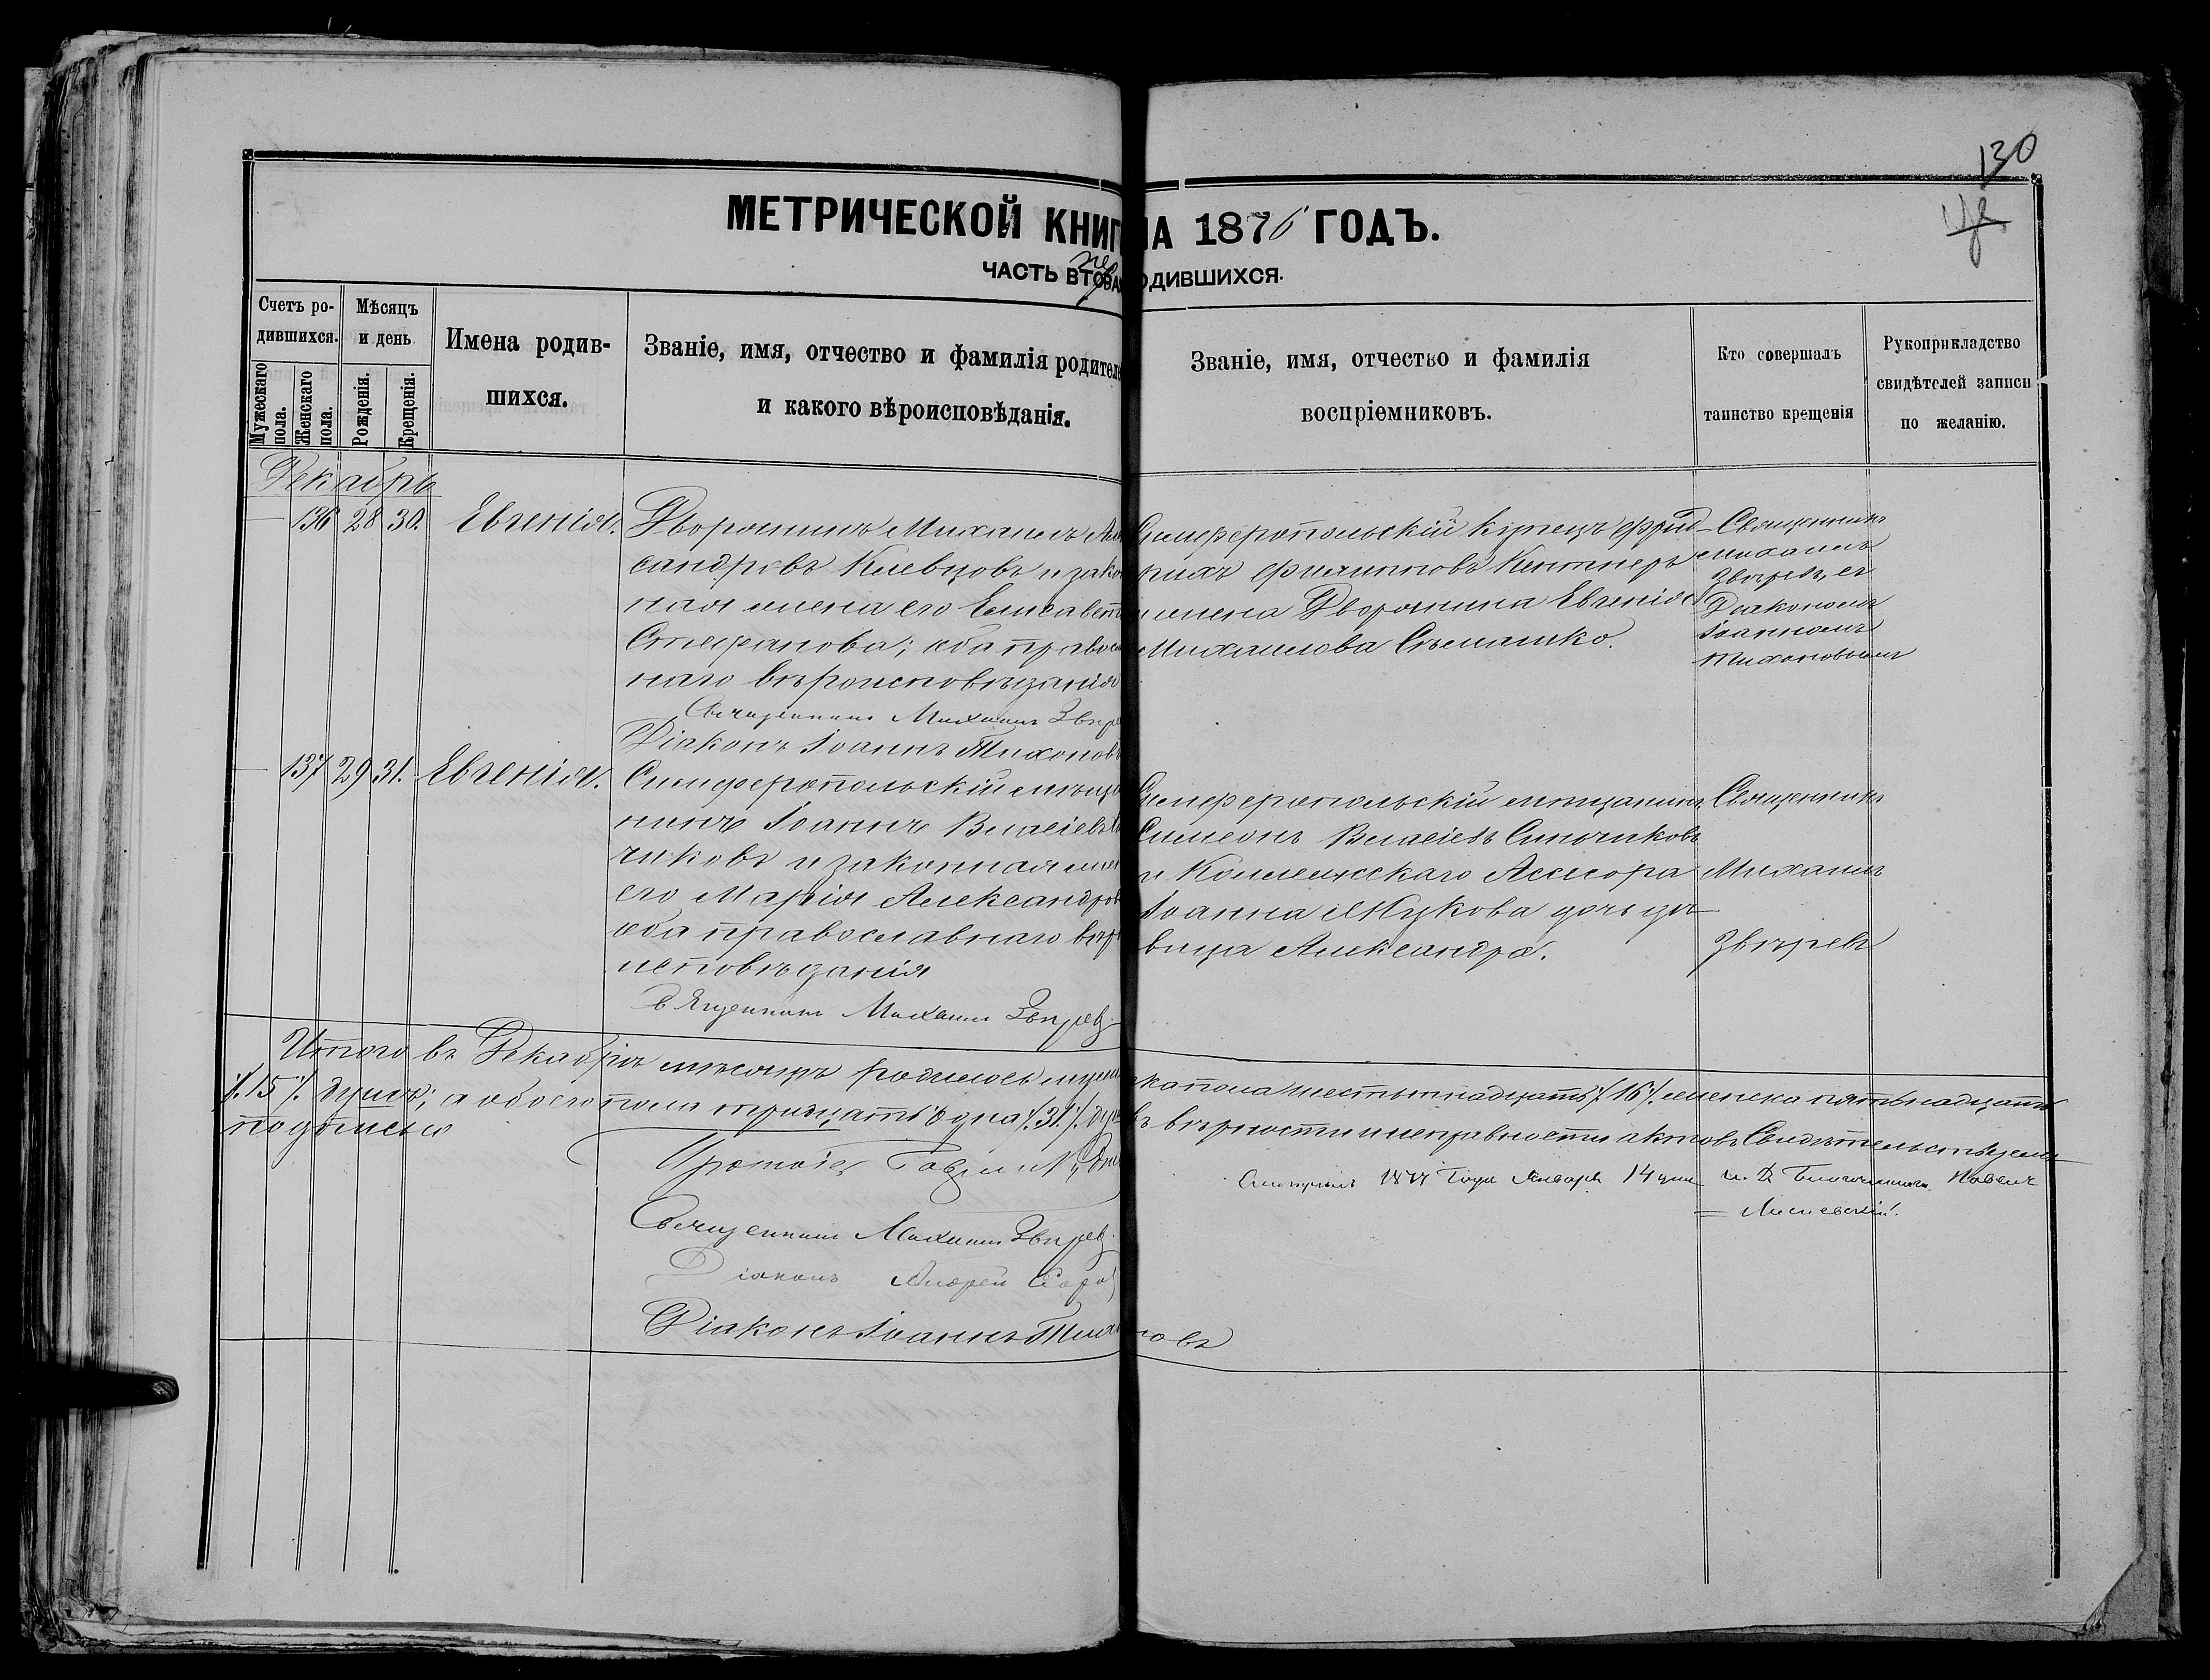 130
МЕТРИЧЕСКОЙ КНИГ НА 1876 ГОДЪ.
ЧАСТЬ ВТОРАЯ РОДИВШИХСЯ.
Счетъ ро-
дившихся.
Мужескаго пола.
Женскаго пола.
Мѣсяцъ
и день
Рожденія.
Крещенія.
Имена родив-
шихся.
Званіе, имя, отчество и фамилія родител
и какого вѣроисповѣданія.
Званіе, имя, отчество и фамилія
воспріемниковъ.
Кто совершалъ
таинство крещенія
Рукоприкладство
свидѣтелей записи
по желанію.
Декабрь
136 28 30. Евгенія.
Дворянинъ Михаилъ Алек
сандровъ Клевцовъ и закон
ная жена его Елисавета
Стефанова; оба правос
наго вѣроисповѣданія
Священникъ Михаилъ Звѣре
Діаконъ Іоаннъ Тихоновъ
Симферопольскій Купецъ Фрид
рихъ Филипповъ
и жена Дворянина Евгенія
Михаилова
Священникъ
Михаилъ
Звѣревъ, съ
Діакономъ
Іоанномъ
Тихоновымъ
137 29 31. Евгенія.
Симферопольскій мѣща
нинъ Іоаннъ Власіевъ
чиковъ и законная жен
его Марія Александров
оба православнаго вѣро
исповѣданія
Священникъ Михаилъ Звѣревъ
Симферопольскій мѣщанинъ
Симеонъ Власіевъ Синчиковъ
и Коллежскаго Ассесора
Іоанна Жукова дочь дѣ-
вица Александра.
Священникъ
Михаилъ
Звѣревъ
Итого въ Декабрѣ мѣсяцѣ родилось муже ска пола шестьнадцать /16/. женска пятьнадцать
/.15/. душъ; а обоего пола тридцать одна /.31./. душ въ вѣрности и исправности актовъ Свидѣтельствуемъ
подписью
Протоіер
Священникъ Михаилъ Звѣревъ
Діаконъ Андрей
Діаконъ Іоаннъ Тихоновъ
1877 Года Января 14 дня И. Д. Благочиннаго Павелъ